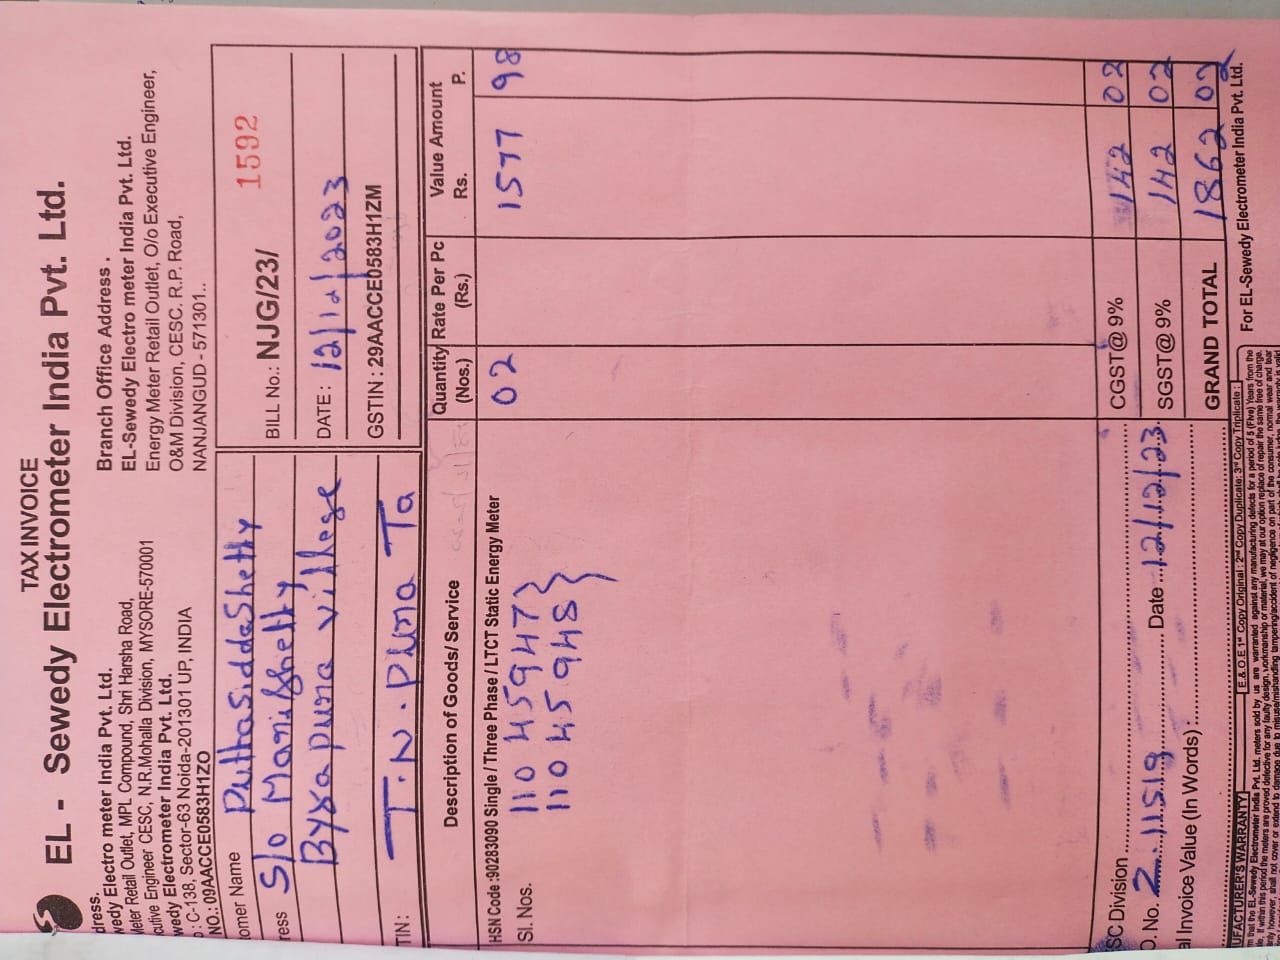 TAX INVOICE
EL - Sewedy Electrometer India Pvt. Ltd.
dress.
wedy Electro meter India Pvt. Ltd.
Meter Retail Outlet, MPL Compound, Shri Harsha Road,
cutive Engineer CESC, N.R.Mohalla Division, MYSORE-570001
wedy Electrometer India Pvt. Ltd.
: C-138, Sector-63 Noida-201301 UP, INDIA
NO.: 09AACCE0583H1ZO
Branch Office Address .
EL-Sewedy Electro meter India Pvt. Ltd.
Energy Meter Retail Outlet, O/o Executive Engineer,
O&M Division, CESC. R.P. Road,
NANJANGUD - 571301..
tomer Name PuttaSiddaShetty
S/o ManiShetty
ress Byrapura village
TIN: T.N.Pura Ta
BILL No.: NJG/23/ 1592
DATE: 12/12/2023
GSTIN : 29AACCE0583H1ZM
Description of Goods/ Service Quantity (Nos.) Rate Per Pc (Rs.) Value Amount Rs. P.
HSN Code :90283090 Single / Three Phase / LTCT Static Energy Meter
Sl. Nos. 110 45947 02 1577 98
110 45948
SC Division CGST@ 9% 142 02
O. No. 2 11519 Date 12/12/23 SGST@ 9% 142 02
al Invoice Value (In Words) : GRAND TOTAL 1862 02
E.& O.E 1st Copy Original : 2nd Copy Duplicate: 3rd Copy Triplicate :
For EL-Sewedy Electrometer India Pvt. Ltd.
UFACTURER'S WARRANTY
m that the EL-Sewedy Electrometer India Pvt. Ltd. meters sold by us are warranted against any manufacturing defects for a period of 5 (Five) Years from the